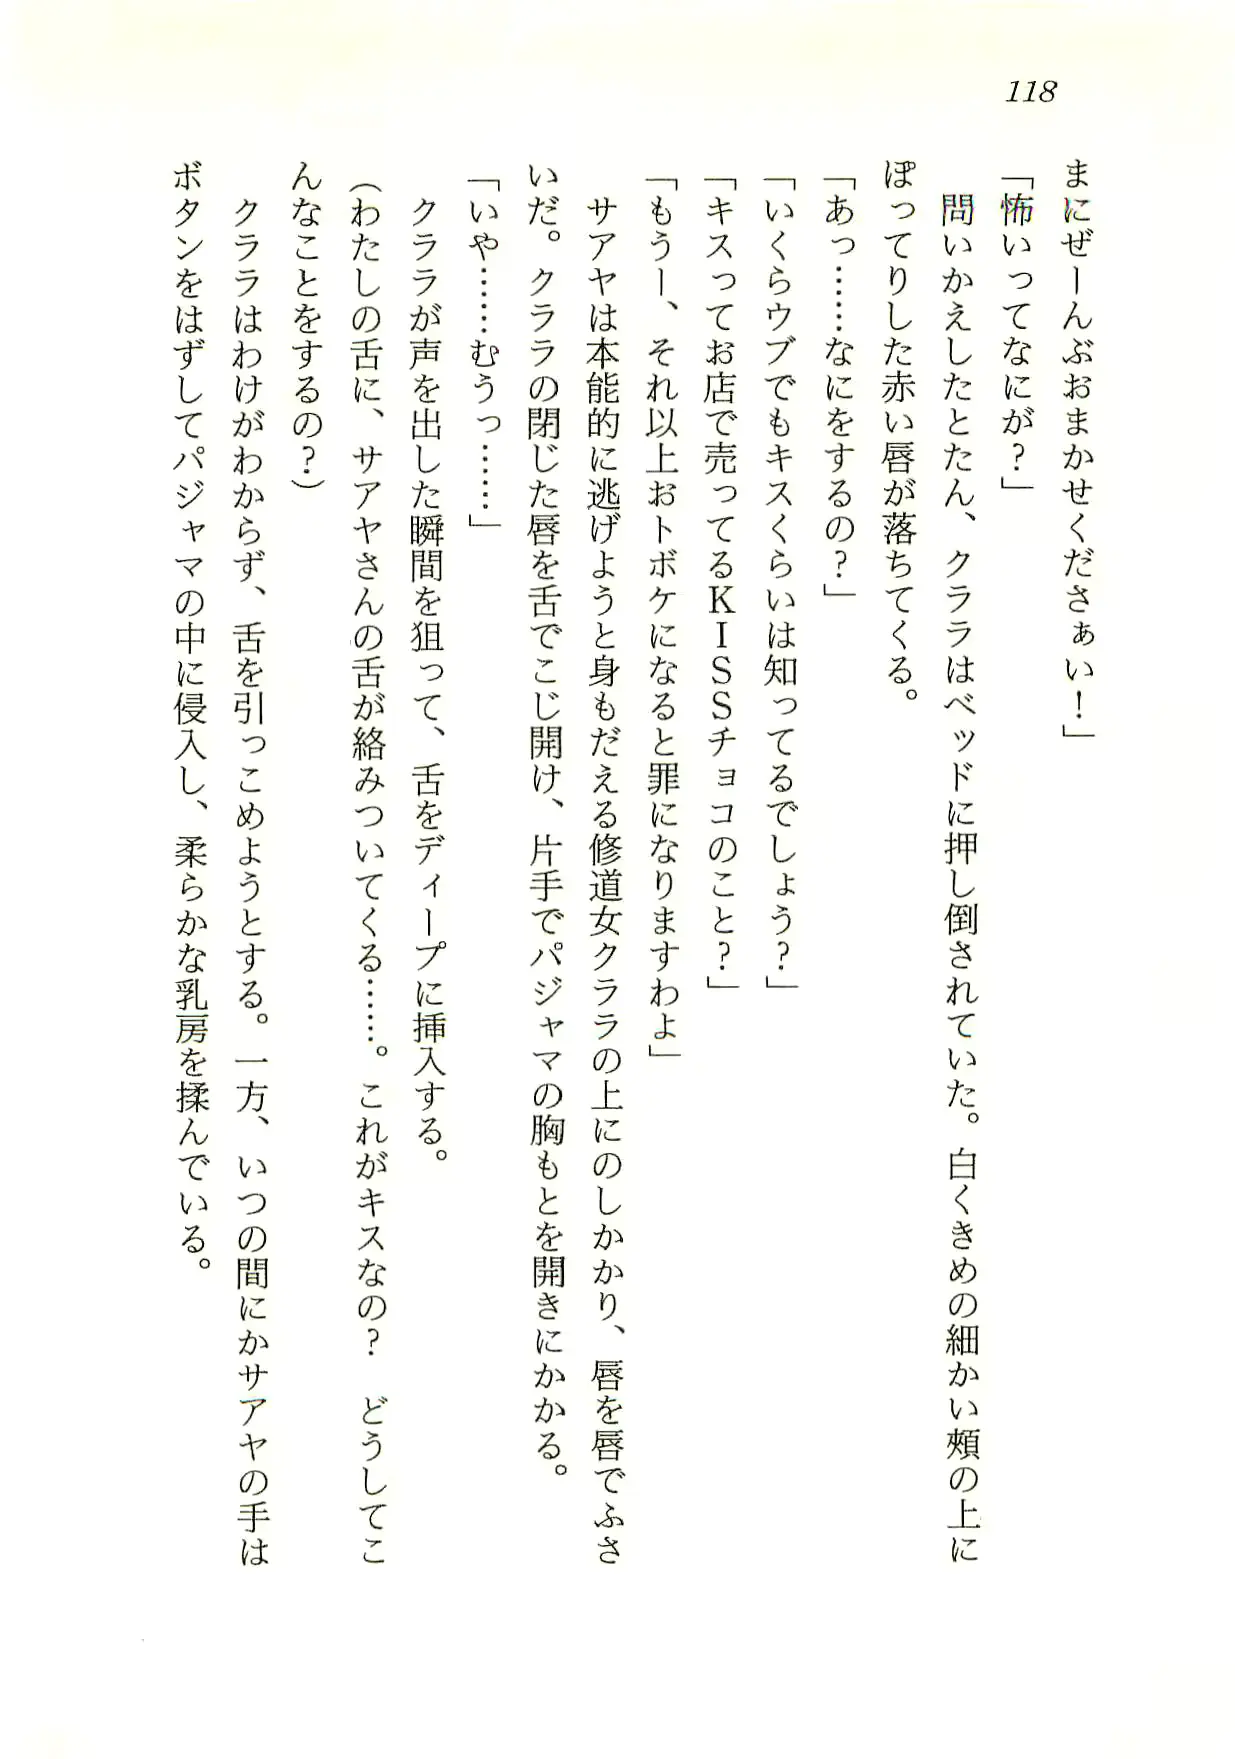 118
まにぜーんぶおまかせくださぁい！」
「怖いってなにが？」
　問いかえしたとたん、クララはベッドに押し倒されていた。白くきめの細かい頰の上に
ぽってりした赤い唇が落ちてくる。
「あっ……なにをするの？」
「いくらウブでもキスくらいは知ってるでしょう？」
「キスってお店で売ってるＫＩＳＳチョコのこと？」
「もうー、それ以上おトボケになると罪になりますわよ」
　サアヤは本能的に逃げようと身もだえる修道女クララの上にのしかかり、唇を唇でふさ
いだ。クララの閉じた唇を舌でこじ開け、片手でパジャマの胸もとを開きにかかる。
「いや……むうっ……」
　クララが声を出した瞬間を狙って、舌をディープに挿入する。
（わたしの舌に、サアヤさんの舌が絡みついてくる……。これがキスなの？　どうしてこ
んなことをするの？）
　クララはわけがわからず、舌を引っこめようとする。一方、いつの間にかサアヤの手は
ボタンをはずしてパジャマの中に侵入し、柔らかな乳房を揉んでいる。